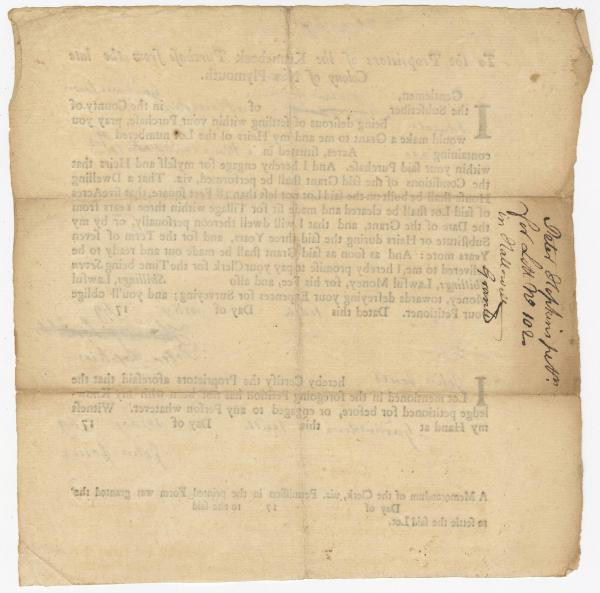 To the Proprietors of the Kennebeck Purchase from the late
Colony of New-Plymouth.
Gentlemen,
I the Subscriber of in the County of
being desirous of settling within your Purchase, pray you
would make a Grant to me and my Heirs of the Lot numbered
containing Acres, situated in
within your said Purchase. And I hereby engage for myself and Heirs that
the Conditions of the said Grant shall be performed, viz. That a Dwelling
House shall be built on the said Lot not less than 18 Feet square, that five Acres
of said Lot shall be cleared and made fit for Tillage within three Years from
the Date of the Grant, and that I will dwell thereon personally, or by my
Substitute or Heirs during the said three Years, and for the Term of seven
Years more: And as soon as said Grant shall be made out and ready to be
delivered to me, I hereby promise to pay your Clerk for the Time being Seven
Shillings, Lawful Money, for his Fee, and also Shillings, Lawful
Money, towards defreying your Expences for Surveying; and you'll oblige
your Petitioner. Dated this Day of 17
Peter Hopkins
I John Jones hereby Certify the Proprietors aforesaid that the
Lot mentioned in the foregoing Petition has not been with my Know-
ledge petitioned for before, or engaged to any Person whatever. Witness
my Hand at this Day of 17
John Jones
A Memorandum of the Clerk, viz. Permission in the printed Form was granted the
Day of 17 to the said
to settle the said Lot.
Peter Hopkins petn.
for Lott No 102
in Hallowell
Grantd